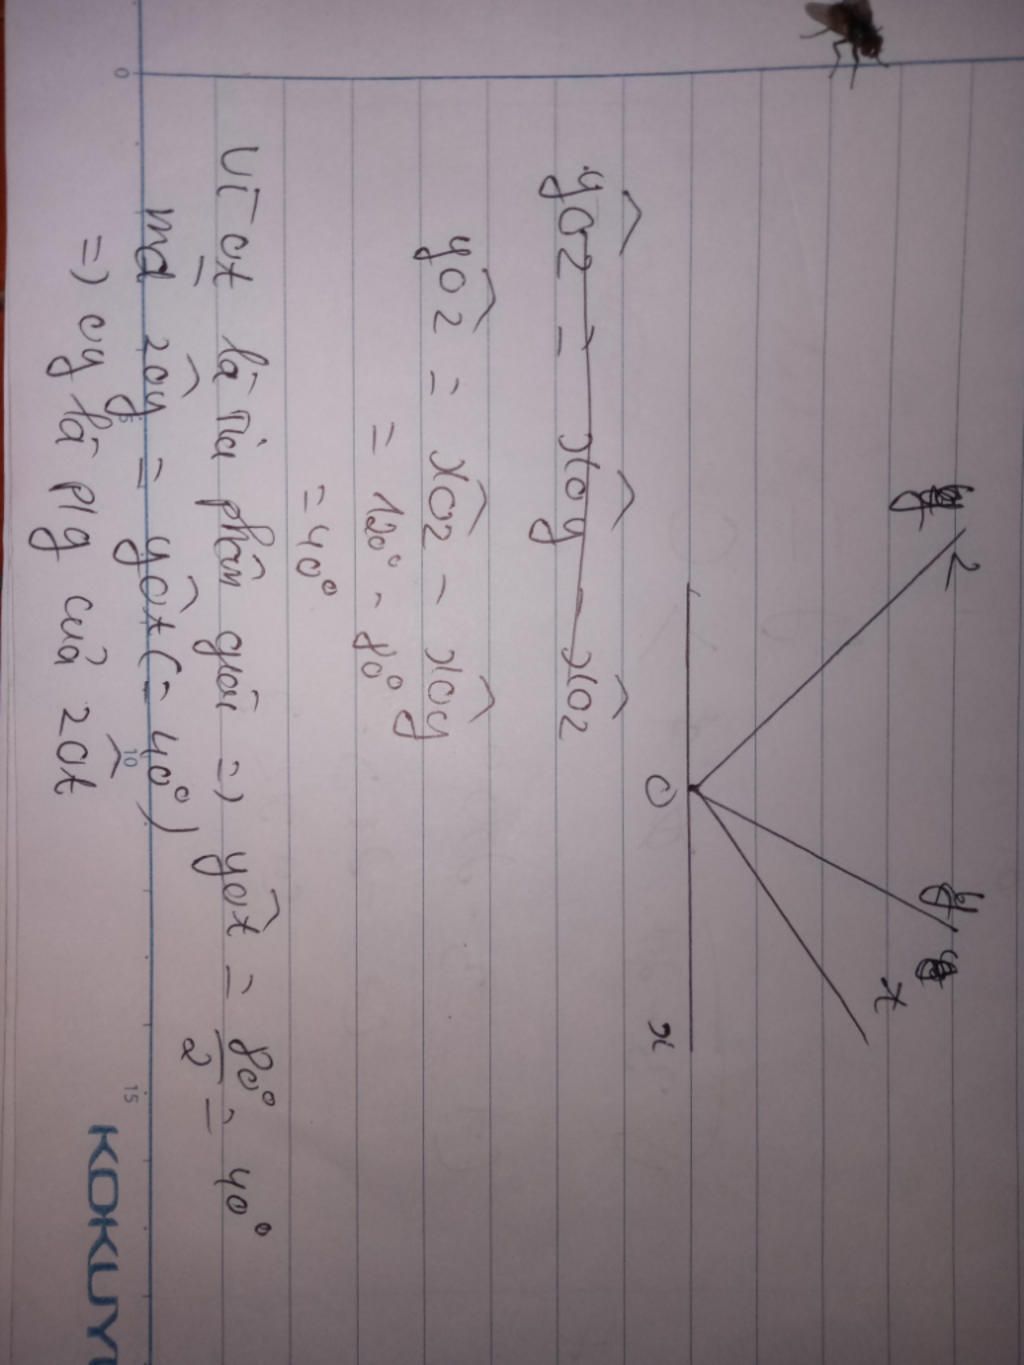 z
y
t
O
x
yOz = xOy - xOz
yOz = xOz - xOy
= 120° - 80°
= 40°
Vì ot là tia phân giác => yot = 80°/2 = 40°
mà zoy = yot (= 40°)
=> oy là p/g của zot
0
5
10
15
KOKUY